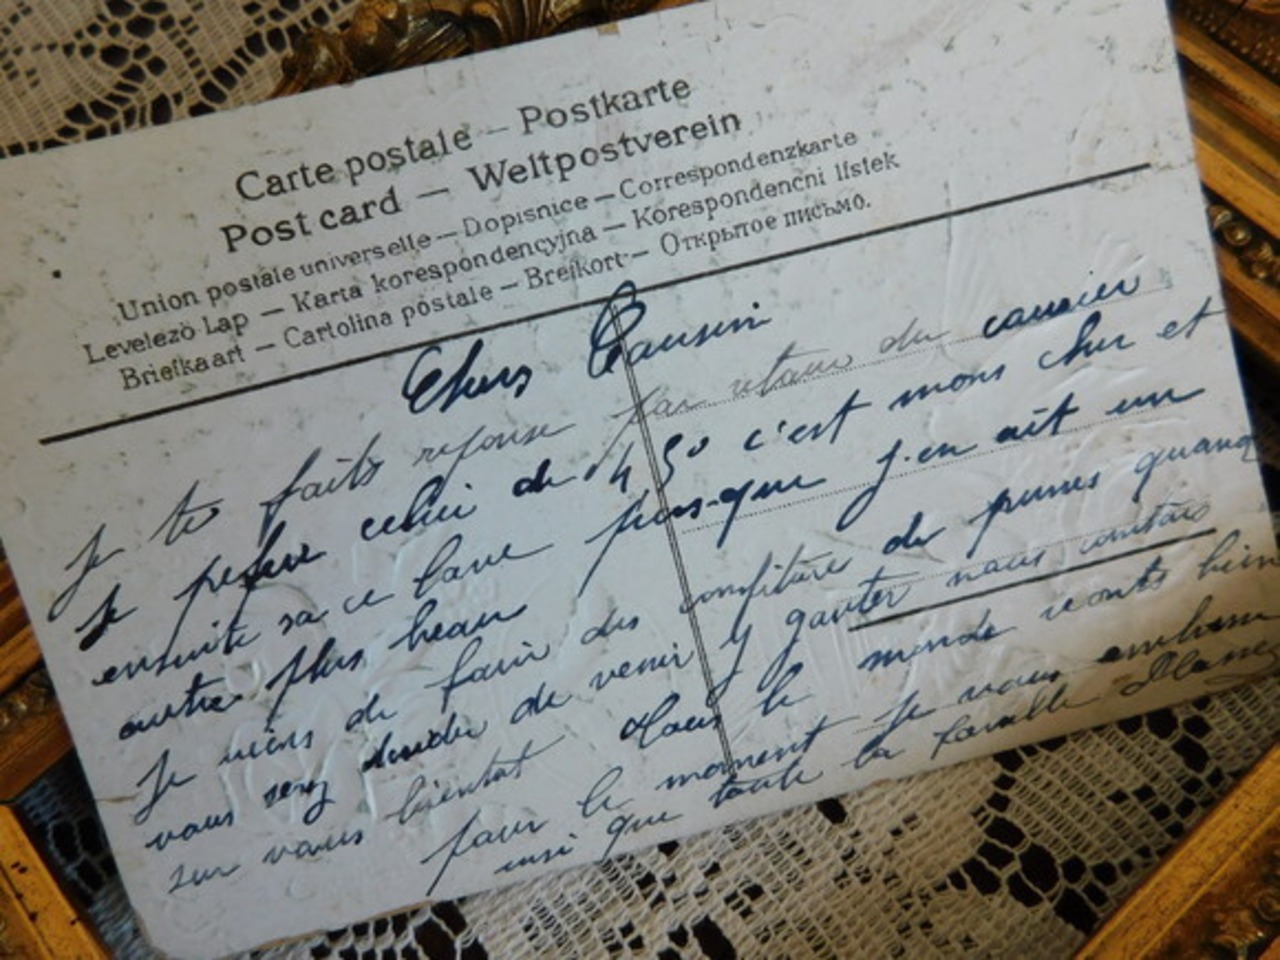 Carte postale — Postkarte
Post card — Weltpostverein
Union postale universelle — Dopisnice — Correspondenzkarte
Levelezö Lap — Karta korespondencyjna — Korespondencni listek
Briefkaart — Cartolina postale — Brefkort — Открытое письмо.
Chers Cousin
Je te faits reponse par retour du courrier
Je prefere celui de 14 50 c'est mons cher et
ensuite sa ce lave puis-que j'en ait un
autre plus beau
Je viens de fair des confiture de prunes quand
vous serez decider de venir y gouter nous contons
sur vous bientot Tous le monde vonts bien
pour le moment je vous embrasse
insi que toute la famille